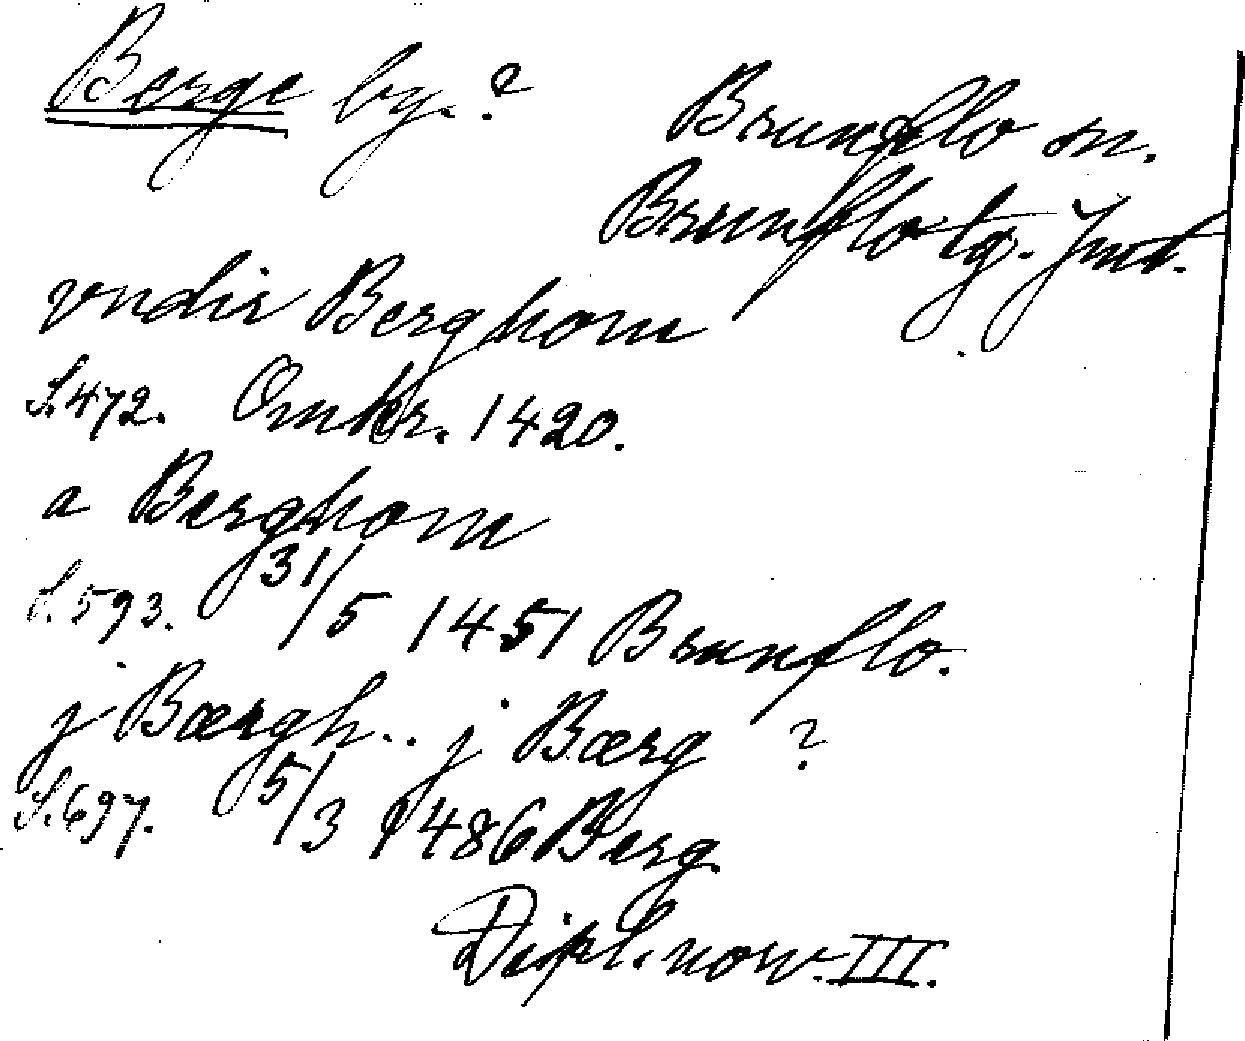 Berge by.?
Brunflo sn.
Brunflo tg. Jmt.
vndir Berghom
S. 472. Omkr. 1420.
a Berghom
S. 593. 31/5 1451 Brunflo.
j Bærgh.. j Bærg ?
S. 697. 5/3 1486 Berg.
Dipl. norv. III.